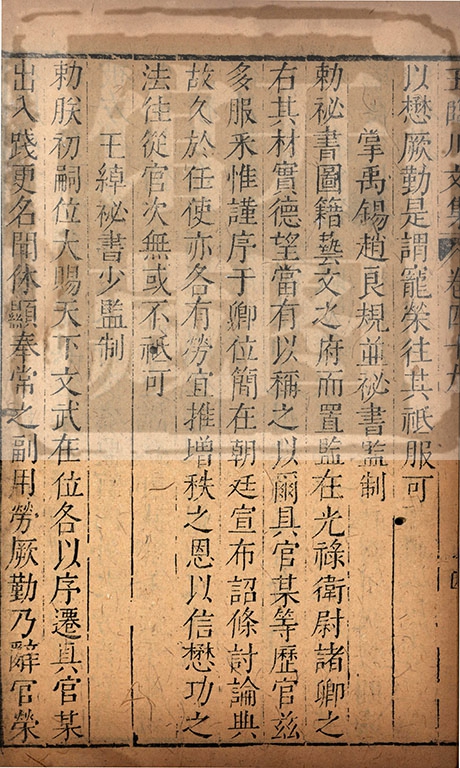 王臨川文集 卷四十九
以懋厥勤是謂寵榮往其祇服可
掌禹錫趙良規並祕書監制
勅祕書圖籍藝文之府而置監在光祿衛尉諸卿之
右其材實德望當有以稱之以爾具官某等歷官茲
多服釆惟謹序于卿位簡在朝廷宣布詔條討論典
故久於任使亦各有勞宜推增秩之恩以信懋功之
法往從官次無或不祇可
王繂祕書少監制
勅朕初嗣位大賜天下文武在位各以序遷具官某
出入踐更名聞休顯奉常之副用勞厥勤乃辭官榮